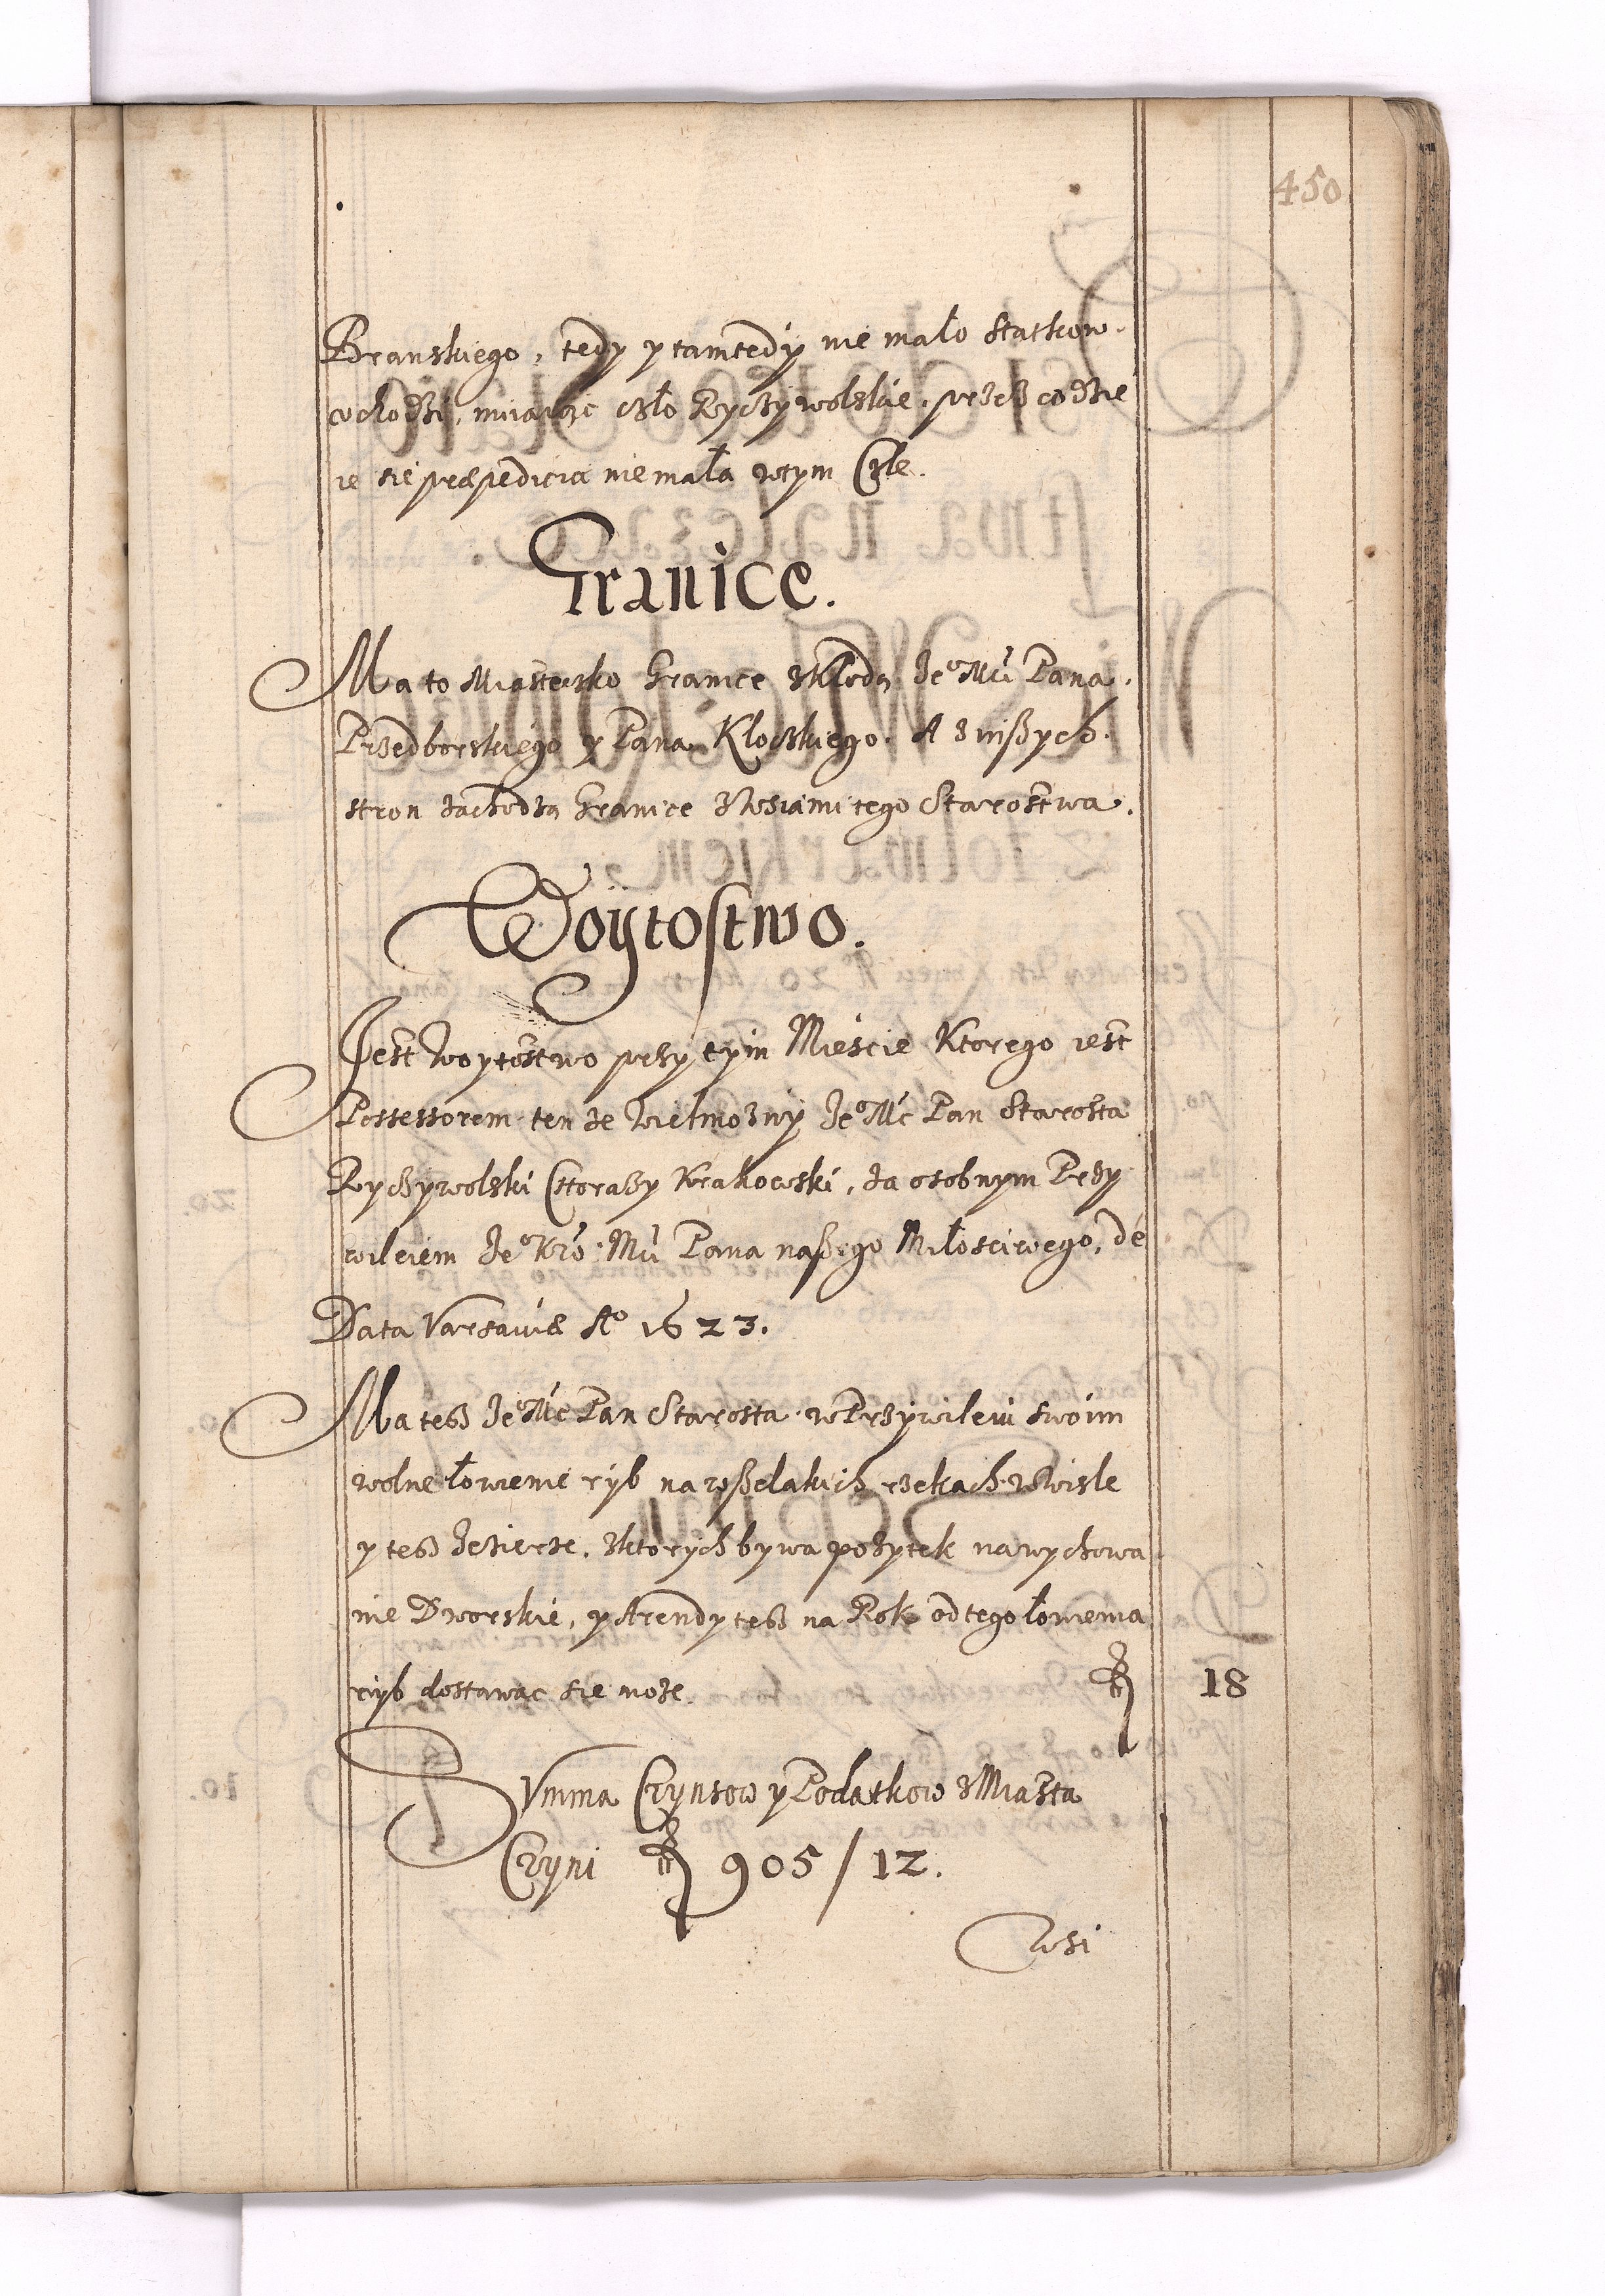 450
Branskiego, tedy y tamtedÿ nie mało statkow
wchodzi, miiaiąc cżło Ryczywolskie, przez co dzie
ie sie præpedicia nie mała w tym Czle.
Granice.
Ma to Miasteczko Granice z Kłodą Jeº Mći Pana
Przedborskiego y Pana Kłoczkiego. A z inßych
stron zachodzą Granice z Wsiami tego Starostwa.
Woÿtostwo.
Jest Woytostwo przy tÿm Mieście Ktorego iest
Possessorem ten ze Wielmoznÿ Jeº Mć Pan Starosta
Ryczywolski Chorazy Krakowski, za osobnym Przy
wileiem Jeº Kro: Mći Pana naßego Miłosciwego, de
Data Varsaviæ Aº 1623.
Ma tesz Jeº Mć Pan Starosta w Przÿwileiu swoim
wolne łowienie rÿb na wßelakich rzekach w Wisle
y tesz Jezierze, z ktorych bywa pozytek na wychowa
nie Dworskie, y Arendy tesz na Rok od tego łowienia
rÿb dostawac sie może. 18
Summa Czynszow y Podatkow z Miasta
Czyni 905/12.
Wsi